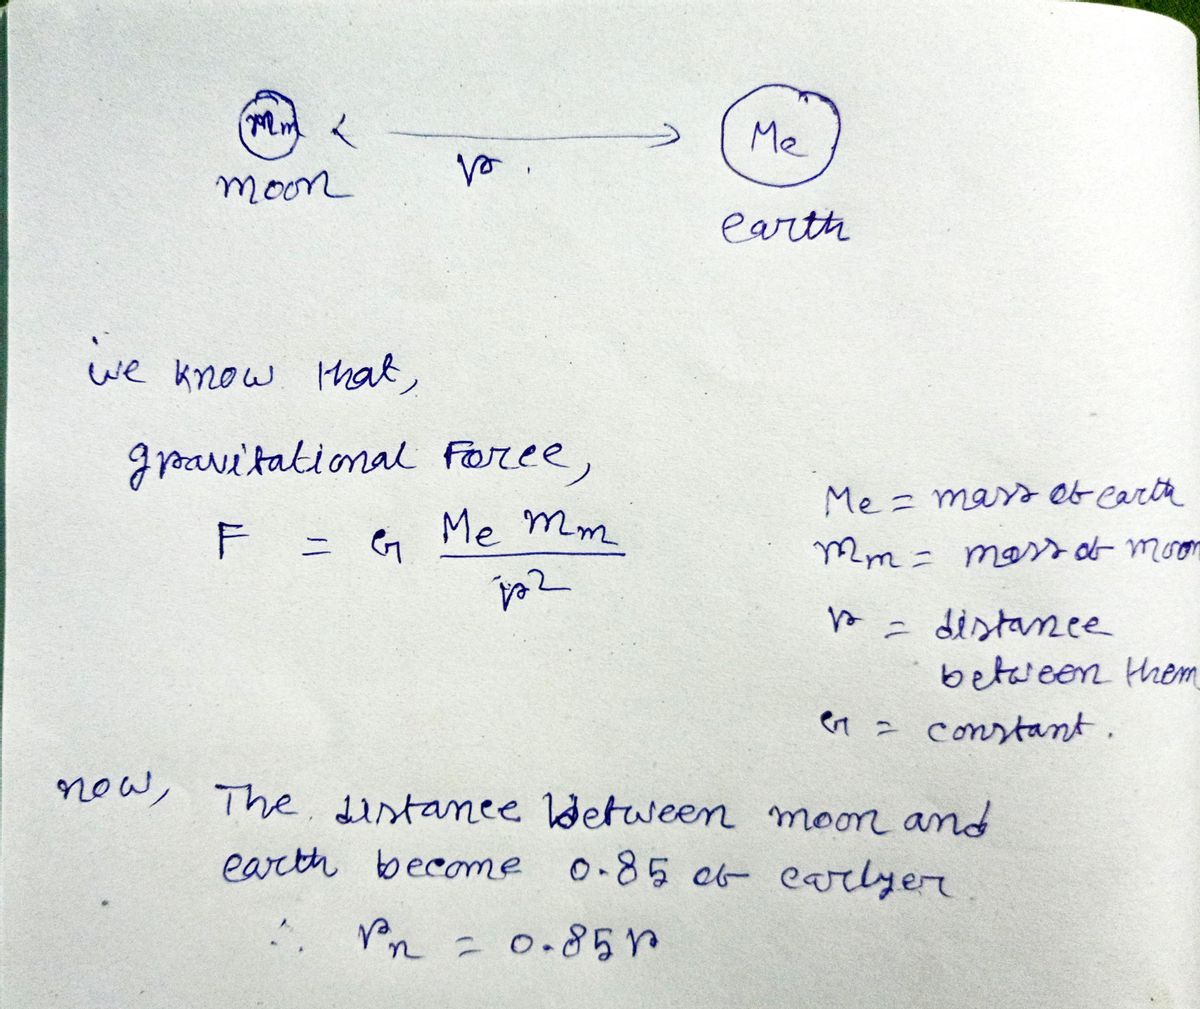 Mm
moon
r
Me
earth
we know that,
gravitational Force,
F = G Me Mm / r2
Me = mass of earth
Mm = mass of moon
r = distance
between them
G = constant.
now, The distance between moon and
earth become 0.85 of earlyer
∴ rn = 0.85 r